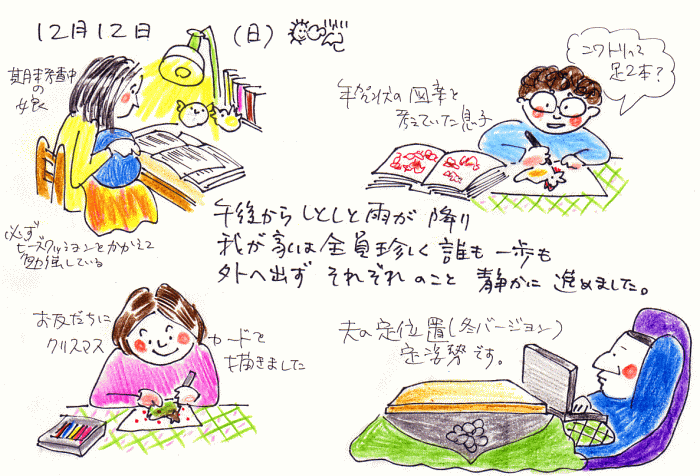 12月12日 (日)
期末考査中
の
娘
必ず
ビーズクッションをかかえて
勉強している
年賀状の図案を
考えていた息子
ニワトリって
足2本?
午後からしとしと雨が降り
我が家は全員珍しく誰も一歩も
外へ出ず それぞれのこと 静かに進めました。
お友だちに
クリスマス
カードを
描きました
夫の定位置(冬バージョン)
定姿勢です。